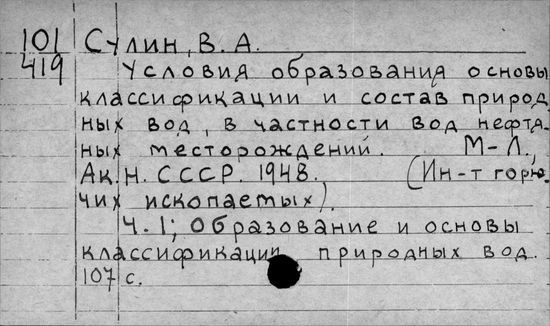 101 Сулин, В. А.
419 Условия образования основы
классификации и состав природ
ных вод, в частности вод нефтя-
ных месторождений. М-Л.,
Ак. Н. СССР. 1948. (Ин-т горю
чих ископаемых).
Ч. 1; Образование и основы
классификации природных вод.
107 с.